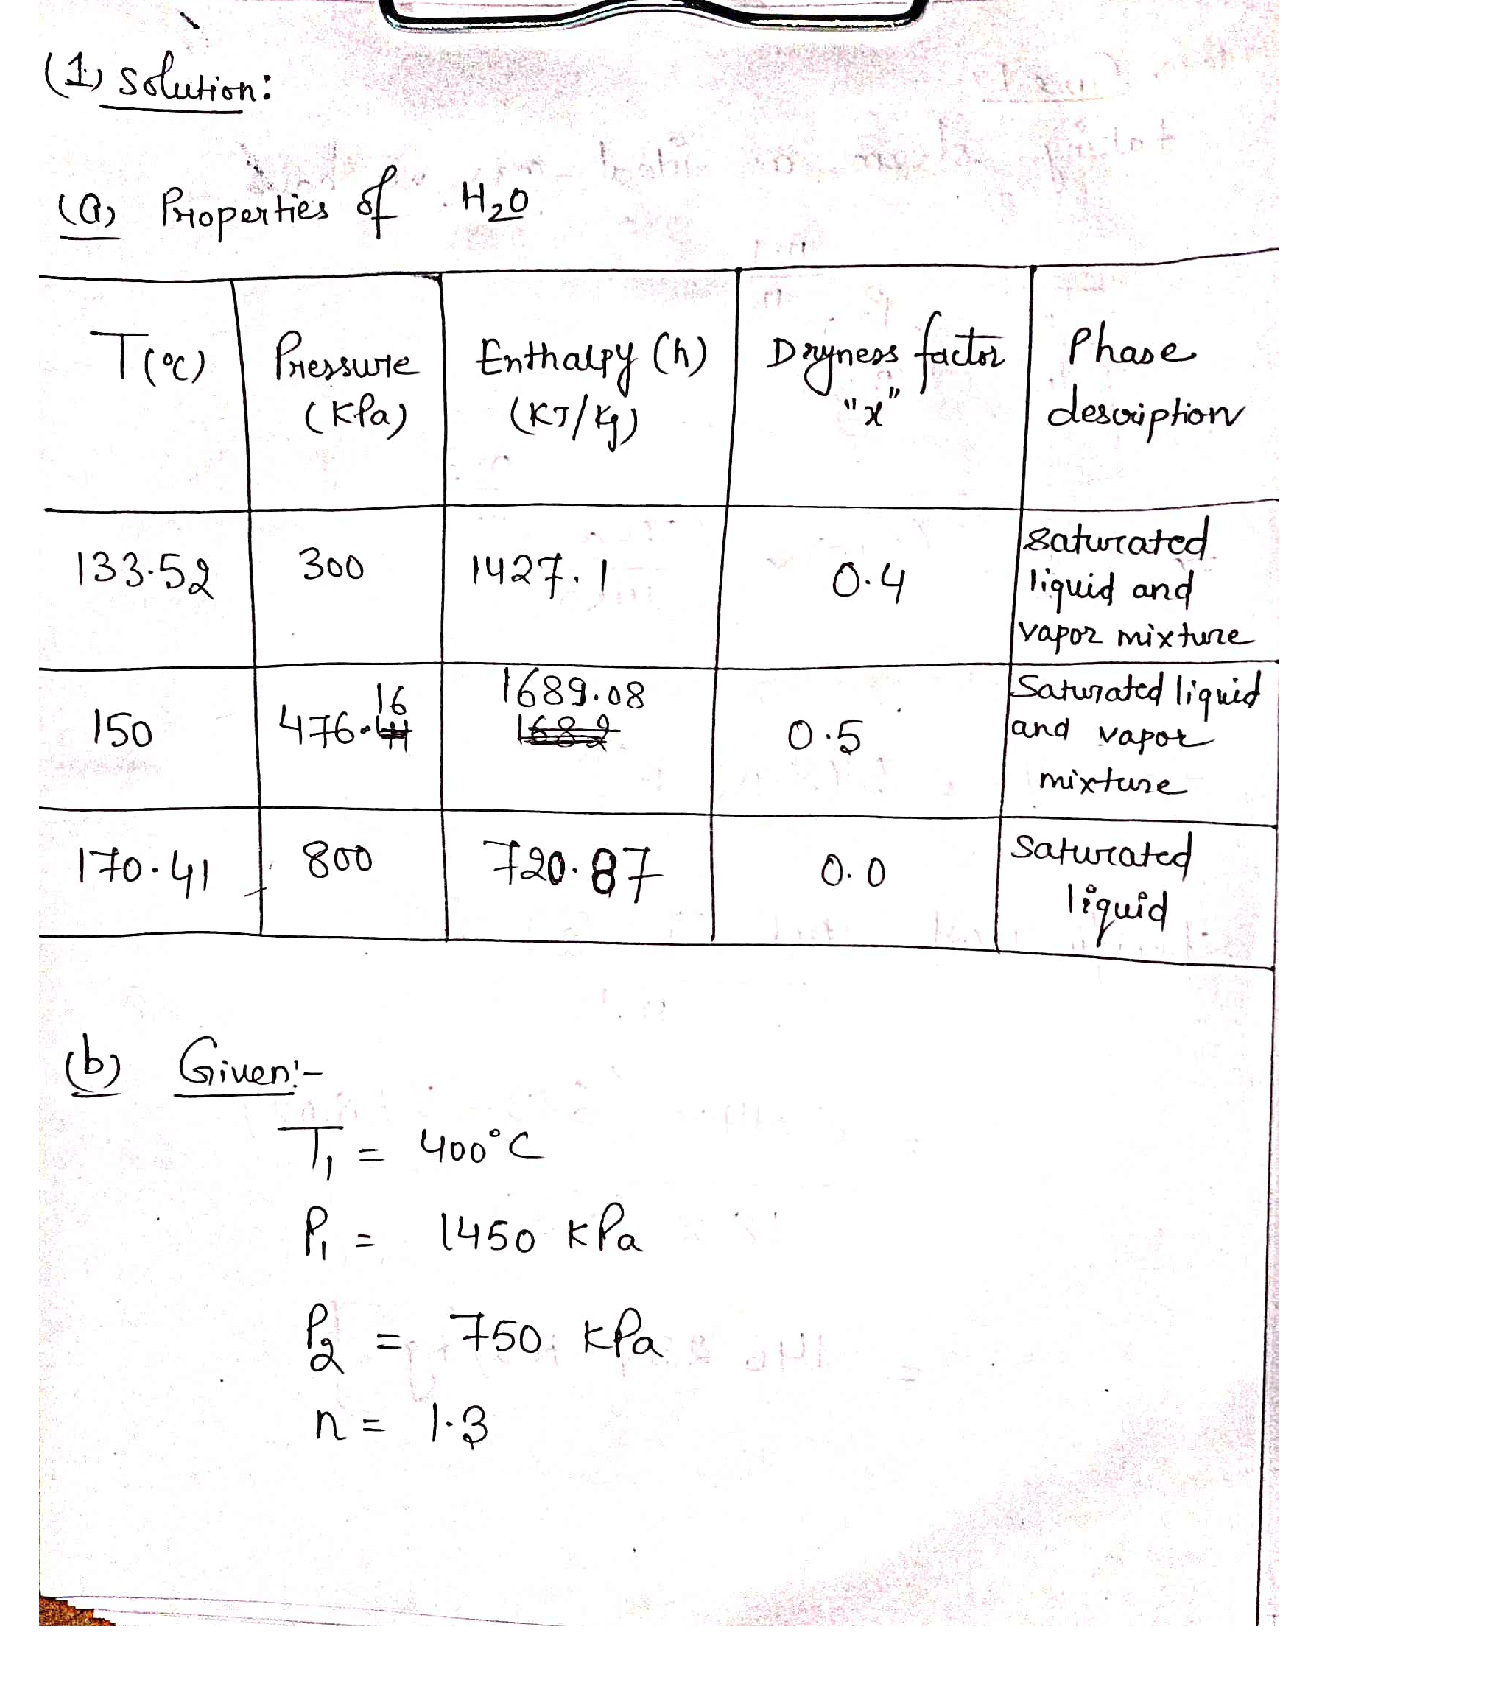 (1) Solution:
(a) Properties of H2O
T(°C) Pressure (KPa) Enthalpy (h) (KJ/Kg) Dryness factor "x" Phase description
133.52 300 1427.1 0.4 saturated liquid and vapor mixture
150 476.16 1689.08 0.5 Saturated liquid and vapor mixture
170.41 800 720.87 0.0 Saturated liquid
(b) Given:-
T1 = 400°C
P1 = 1450 kPa
P2 = 750 kPa
n = 1.3